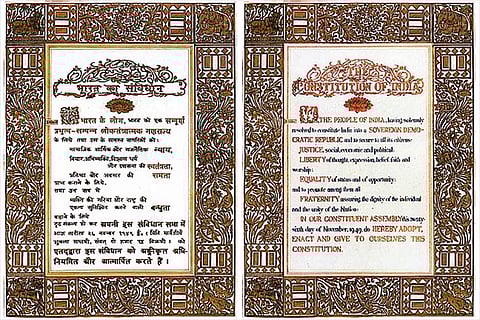 भारत का संविधान
हम भारत के लोग, भारत को एक सम्पूर्ण
प्रभुत्व-सम्पन्न लोकतंत्रात्मक गणराज्य
बनाने के लिये, तथा उस के समस्त नागरिकों को:
सामाजिक आर्थिक और राजनैतिक न्याय,
विचार, अभिव्यक्ति, विश्वास, धर्म
और उपासना की स्वतंत्रता,
प्रतिष्ठा और अवसर की समता
प्राप्त कराने के लिये,
तथा उन सब में
व्यक्ति की गरिमा और राष्ट्र की
एकता सुनिश्चित करने वाली बन्धुता
बढ़ाने के लिये
दृढ़ संकल्प हो कर अपनी इस संविधान सभा में
आज तारीख २६ नवम्बर १९४९ ई० (मिति मार्गशीर्ष
शुक्ला सप्तमी, संवत् दो हजार छ विक्रमी) को
एतद्द्वारा इस संविधान को अङ्गीकृत, अधि-
नियमित और आत्मार्पित करते हैं।
THE
CONSTITUTION OF INDIA
WE, THE PEOPLE OF INDIA, having solemnly
resolved to constitute India into a SOVEREIGN DEMO-
CRATIC REPUBLIC and to secure to all its citizens:
JUSTICE, social, economic and political;
LIBERTY of thought, expression, belief, faith and
worship;
EQUALITY of status and of opportunity;
and to promote among them all
FRATERNITY assuring the dignity of the individual
and the unity of the Nation;
IN OUR CONSTITUENT ASSEMBLY this twenty-
sixth day of November, 1949, do HEREBY ADOPT,
ENACT AND GIVE TO OURSELVES THIS
CONSTITUTION.